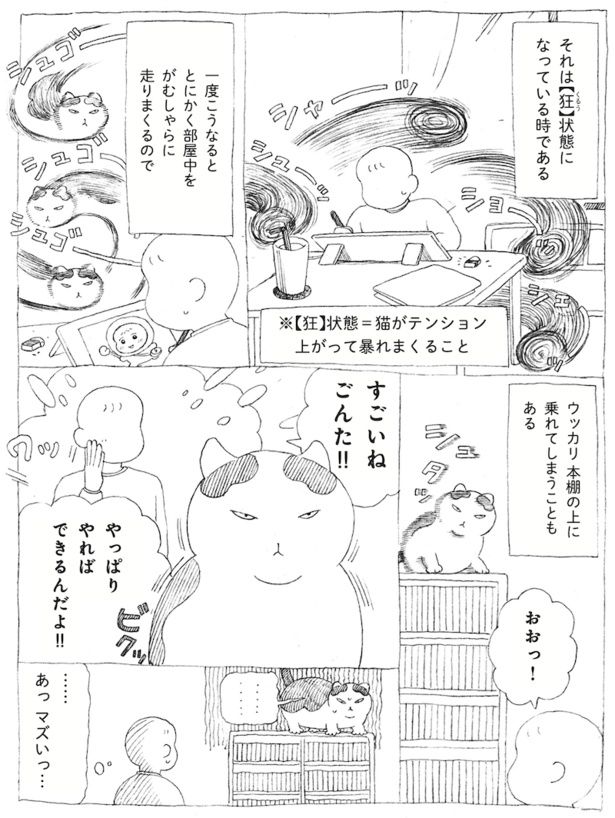 それは【狂】状態に
くるう
なっている時である
シャーーッ
シューーッ
ショーーー
シェーーー
※【狂】状態＝猫がテンション
上がって暴れまくること
一度こうなると
とにかく部屋中を
がむしゃらに
走りまくるので
シュゴーー
シュゴーー
シュゴーー
ウッカリ 本棚の上に
乗れてしまうことも
ある
シュタッ
おおっ！
すごいね
ごんた!!
やっぱり
やれば
できるんだよ!!
クッ
ビクッ
……
……
あっ マズいっ…